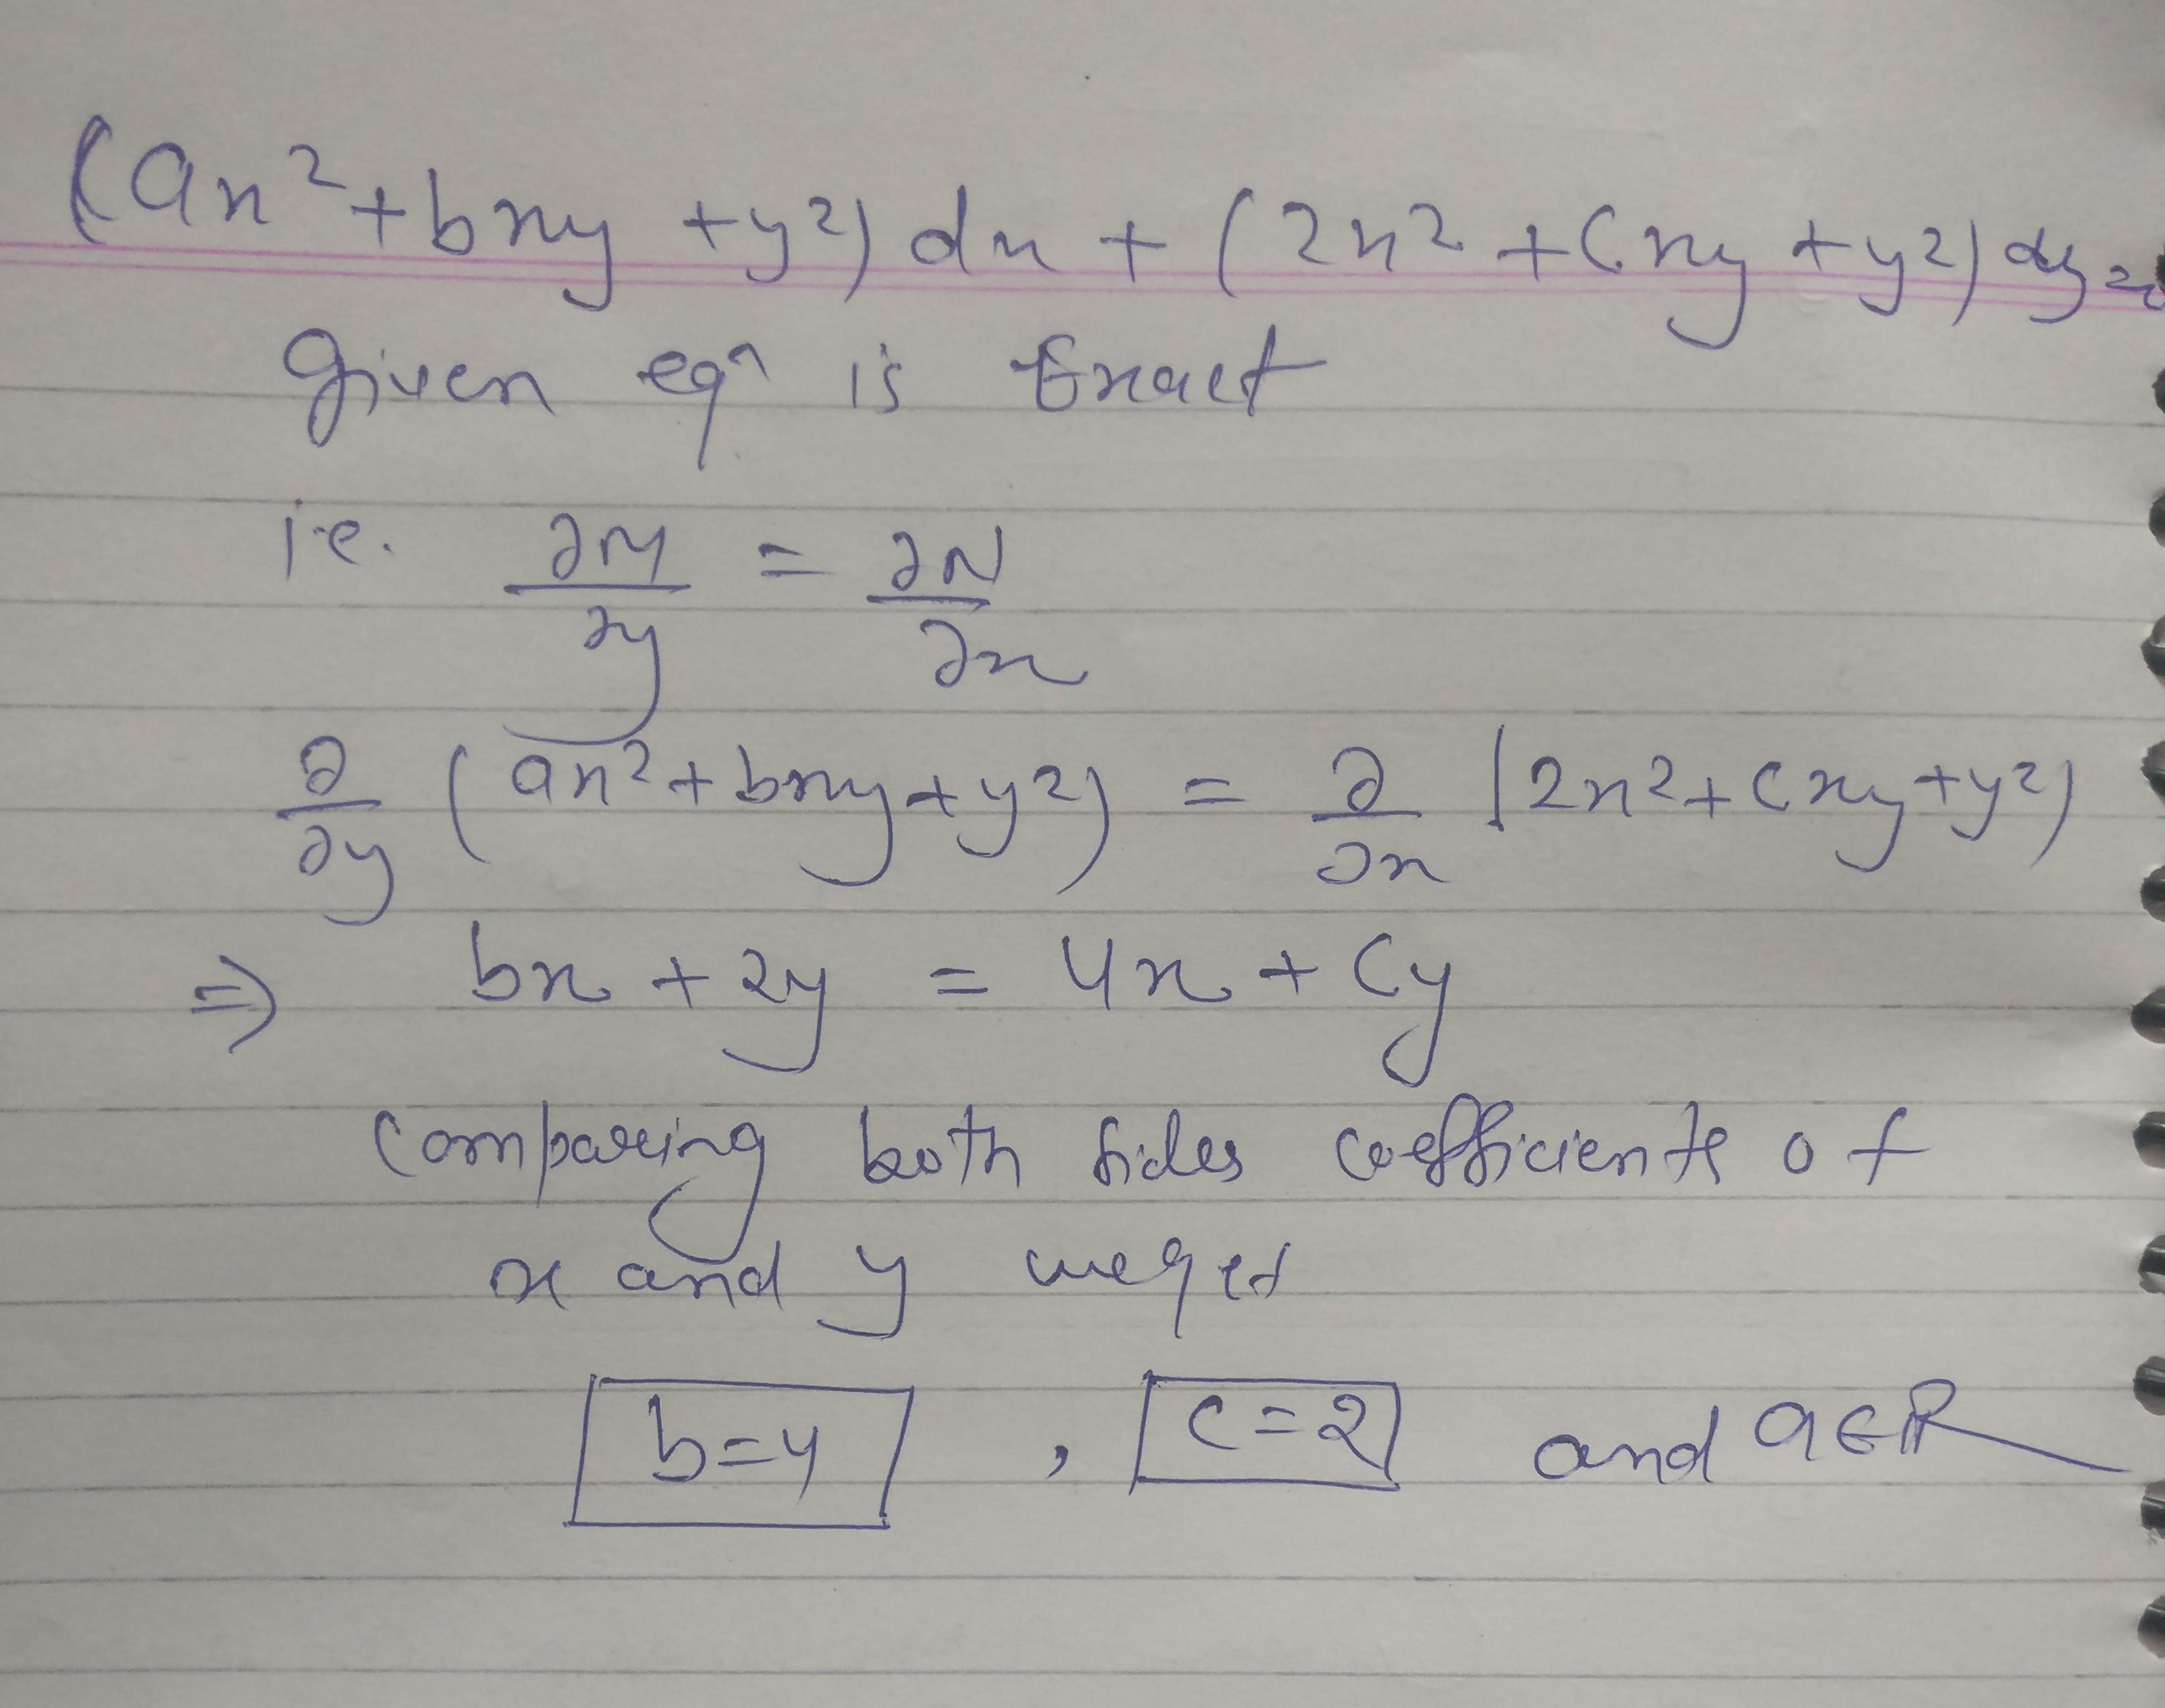 (ax²+bxy +y²) dx + (2x² +Cxy +y²) dy =
given eqⁿ is Exact
i.e. ∂M/∂y = ∂N/∂x
∂/∂y (ax²+bxy+y²) = ∂/∂x (2x²+Cxy+y²)
⇒ bx + 2y = 4x + Cy
Comparing both sides coefficients of
x and y we get
b=4 , C=2 and a∈R